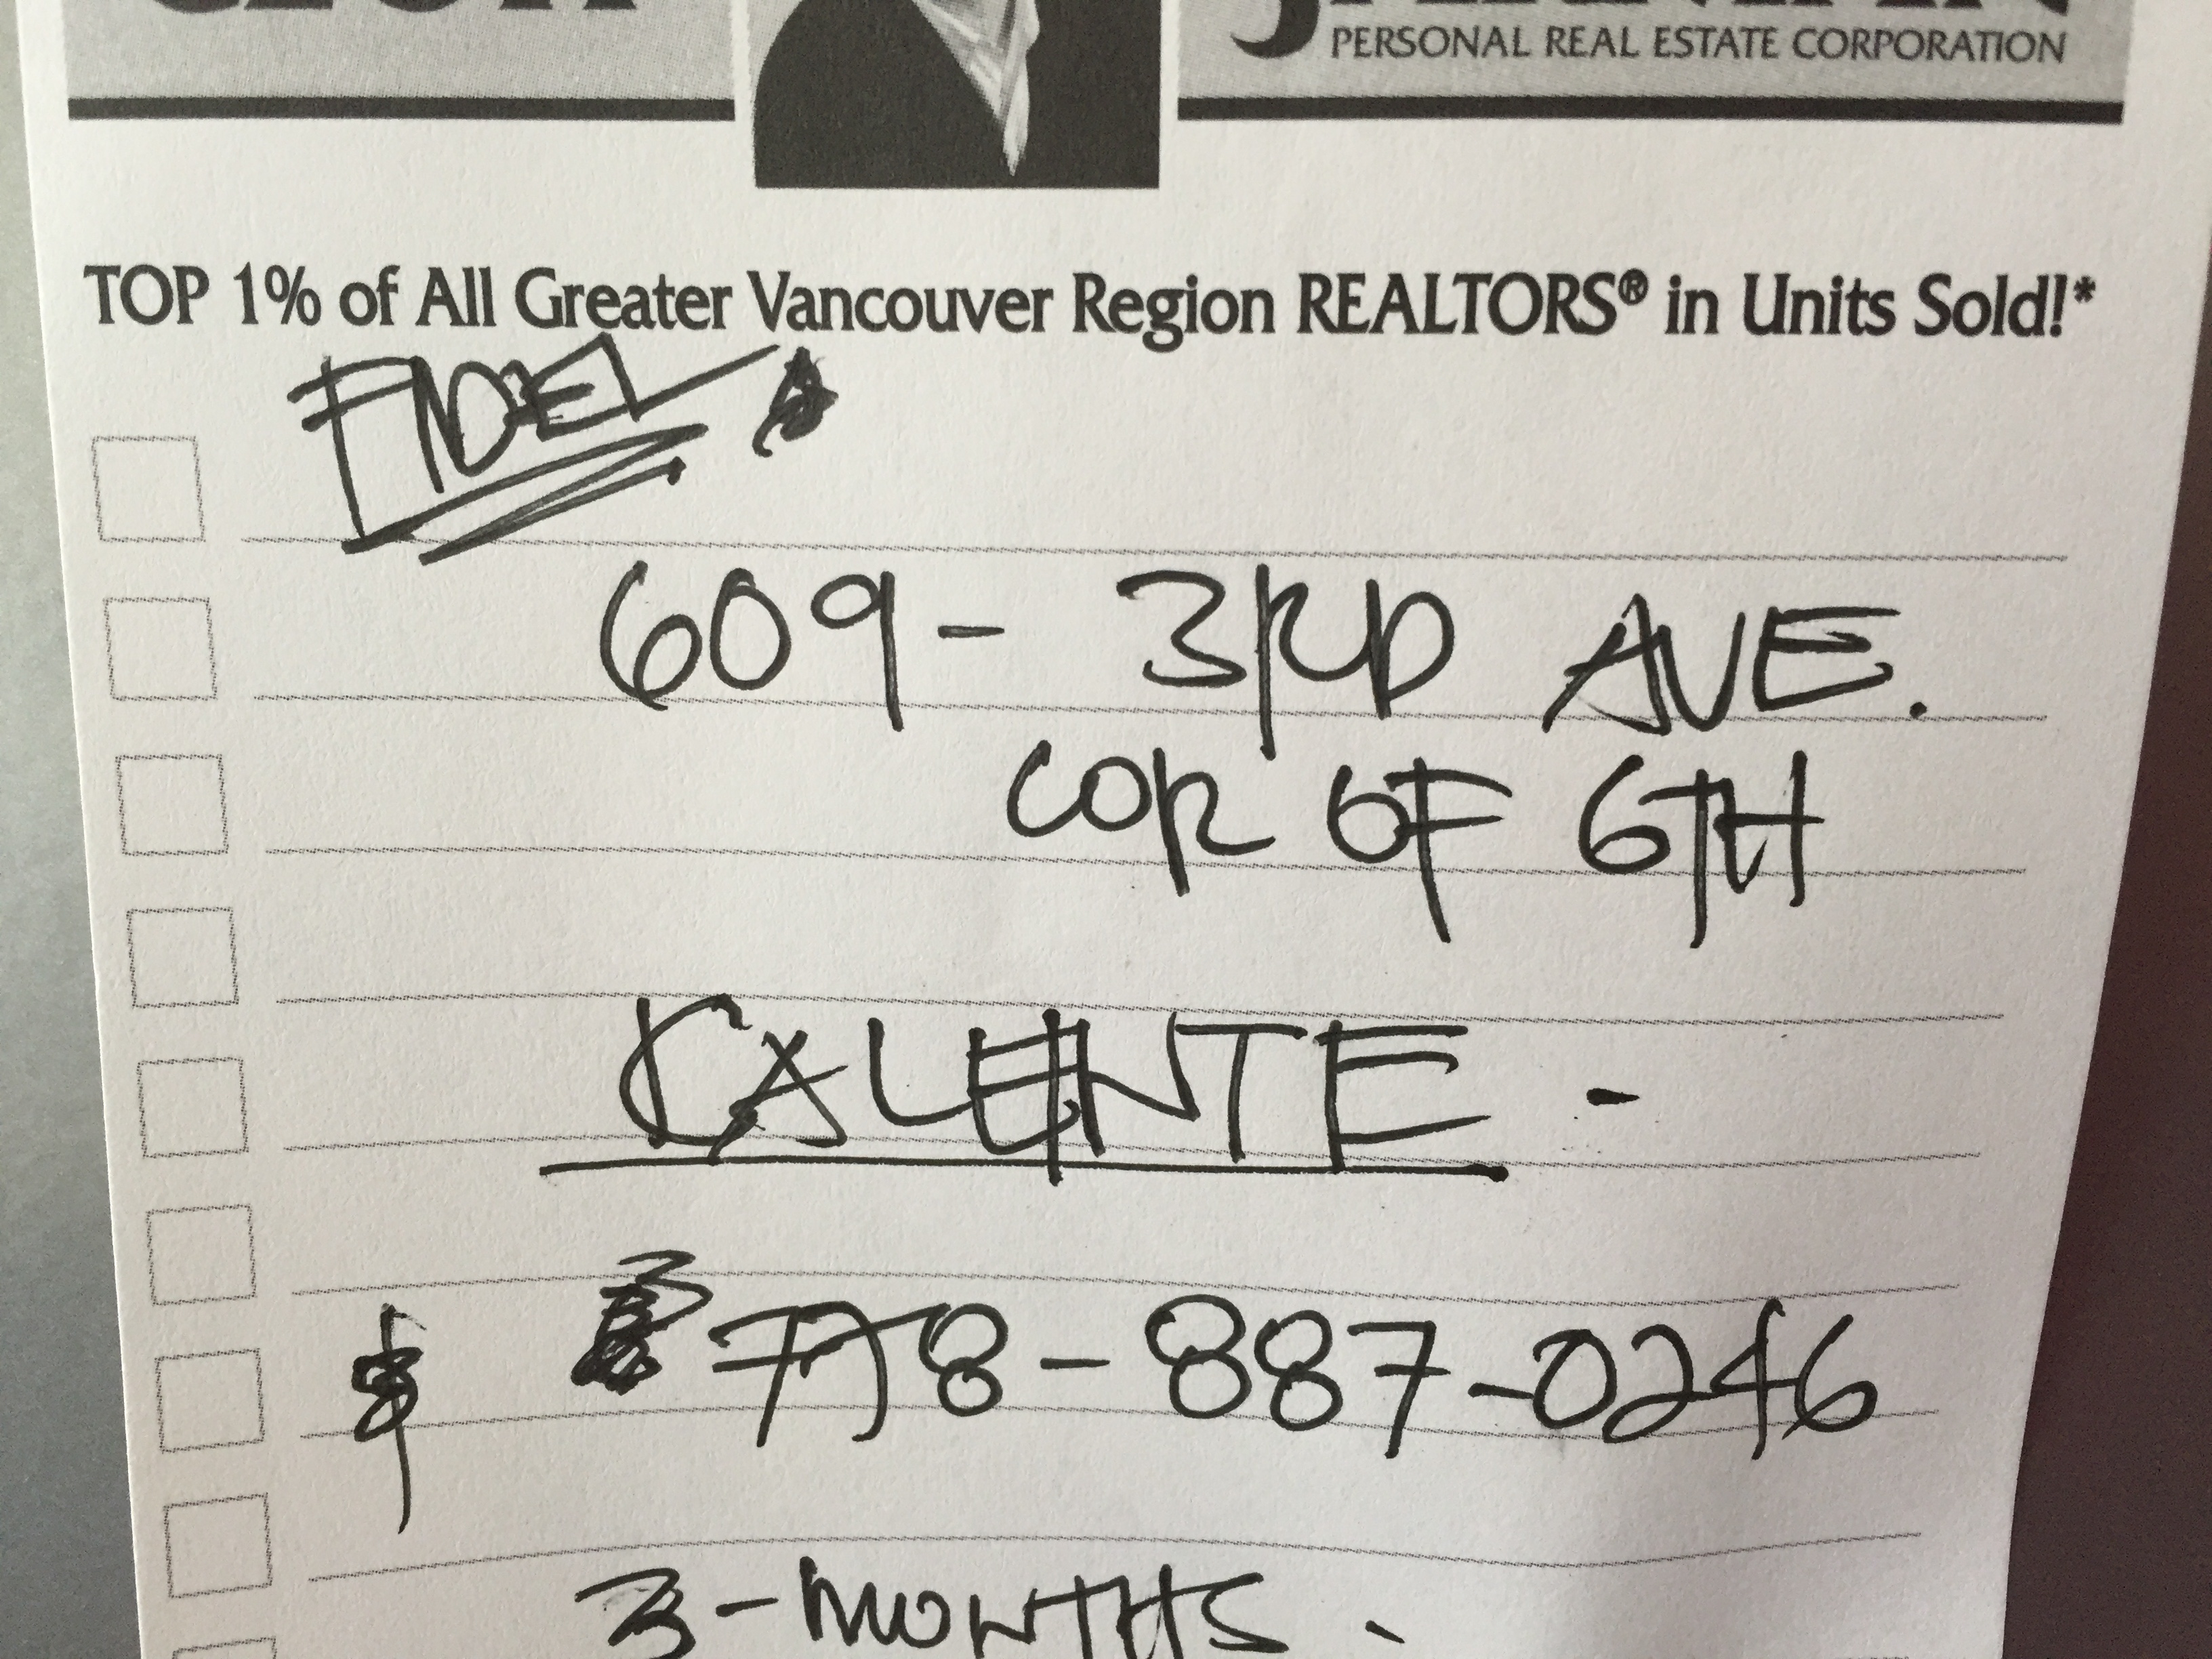 PERSONAL REAL ESTATE CORPORATION
TOP 1% of All Greater Vancouver Region REALTORS® in Units Sold!*
FIDEL
609 - 3RD AVE.
COR OF 6TH
CALENTE -
778-887-0246
3-MONTHS.